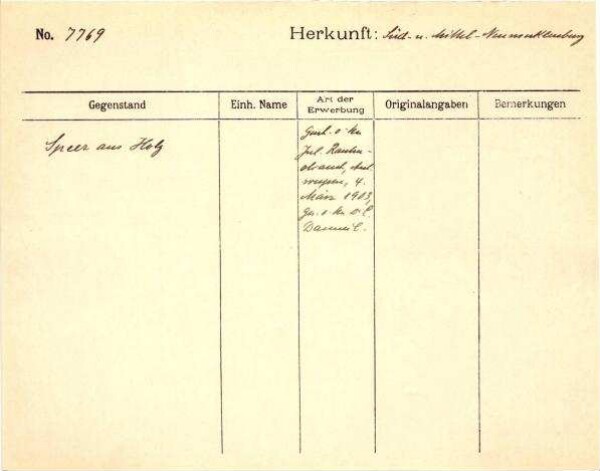 No. 7769 Herkunft: Süd- u. Mittel-Neumecklenburg
Gegenstand Einh. Name Art der Erwerbung Originalangaben Bemerkungen
Speer aus Holz
Gesch. v. Hn.
Jul. Rauten-
strauch, Ant
werpen, 4.
März 1903,
Ges. v. Hn. O. C.
Danneil.